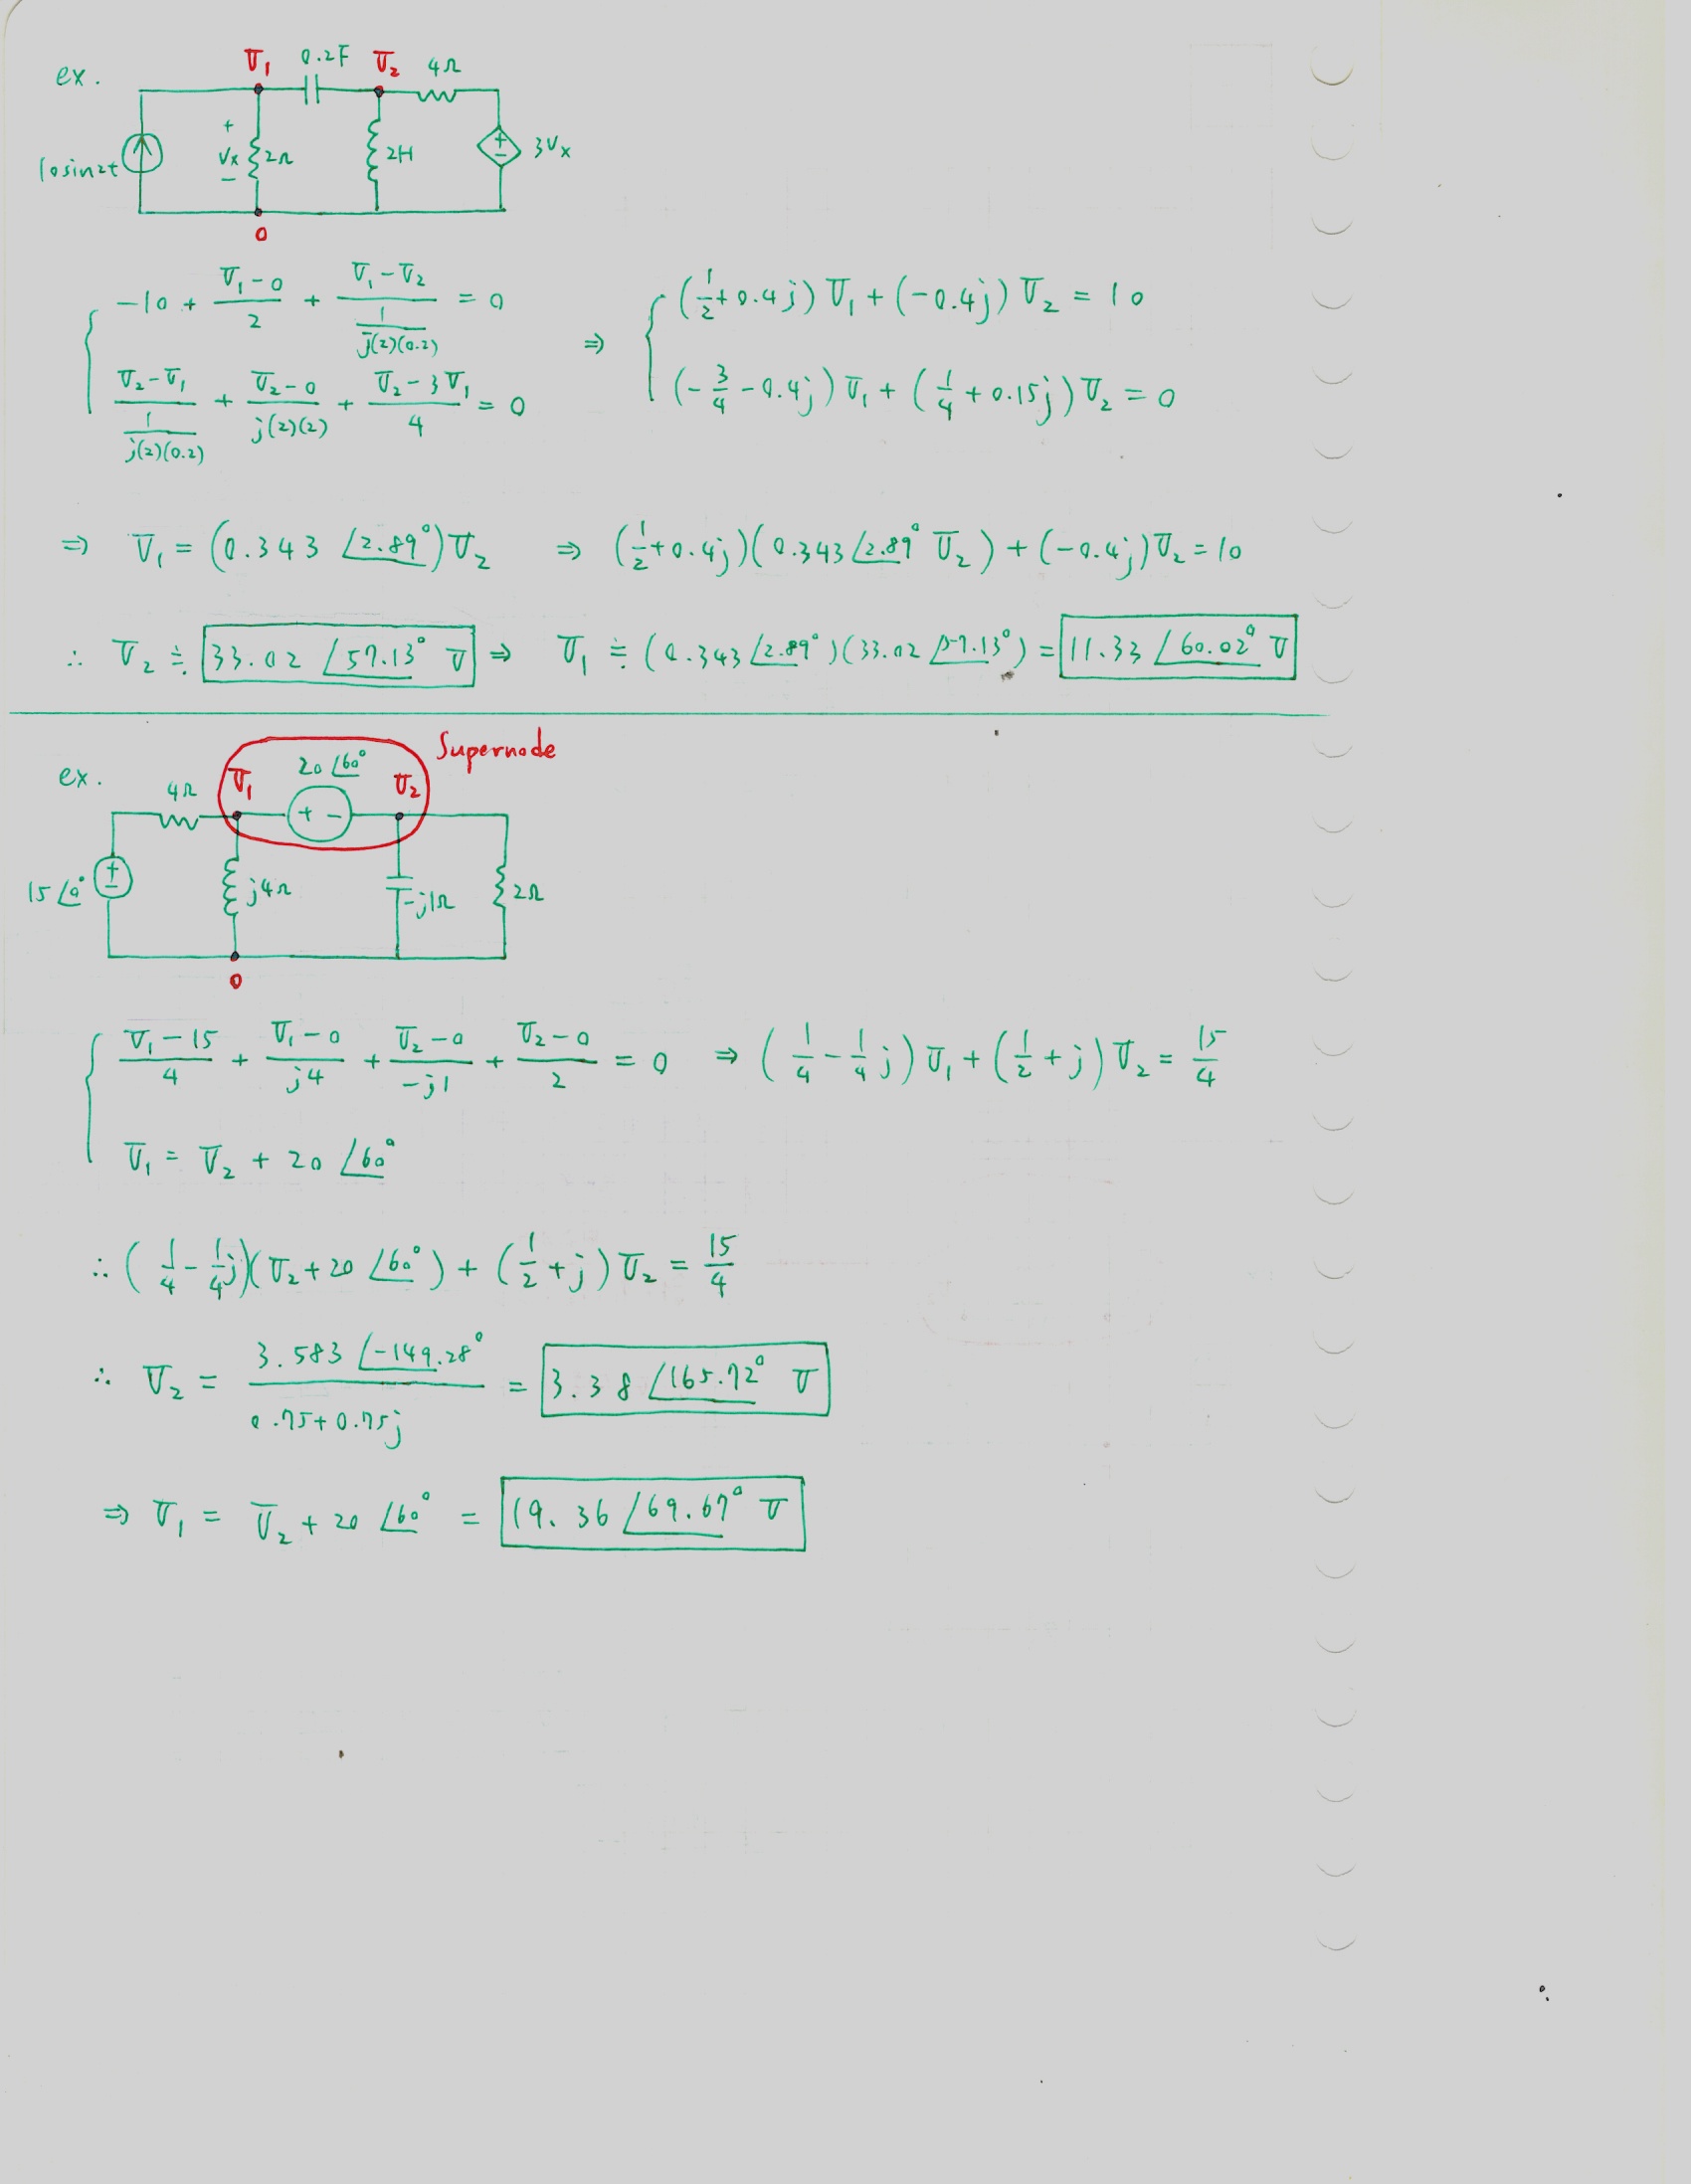 ex.
V₁ 0.2F V₂ 4Ω
10sin2t + Vx − 2Ω 2H + − 3Vx
0
−10 + (V₁−0)/2 + (V₁−V₂)/(1/(j(2)(0.2))) = 0 ⇒ (1/2+0.4j)V₁ + (−0.4j)V₂ = 10
(V₂−V₁)/(1/(j(2)(0.2))) + (V₂−0)/(j(2)(2)) + (V₂−3V₁)/4 = 0 (−3/4−0.4j)V₁ + (1/4+0.15j)V₂ = 0
⇒ V₁ = (0.343∠2.89°)V₂ ⇒ (1/2+0.4j)(0.343∠2.89° V₂) + (−0.4j)V₂ = 10
∴ V₂ ≒ 33.02∠57.13° V ⇒ V₁ ≒ (0.343∠2.89°)(33.02∠57.13°) = 11.33∠60.02° V
ex. Supernode
4Ω V₁ 20∠60° V₂
+ −
15∠0° + − j4Ω −j1Ω 2Ω
0
(V₁−15)/4 + (V₁−0)/j4 + (V₂−0)/(−j1) + (V₂−0)/2 = 0 ⇒ (1/4−1/4j)V₁ + (1/2+j)V₂ = 15/4
V₁ = V₂ + 20∠60°
∴ (1/4−1/4j)(V₂+20∠60°) + (1/2+j)V₂ = 15/4
∴ V₂ = (3.583∠−149.28°)/(0.75+0.75j) = 3.38∠165.72° V
⇒ V₁ = V₂ + 20∠60° = 19.36∠69.67° V